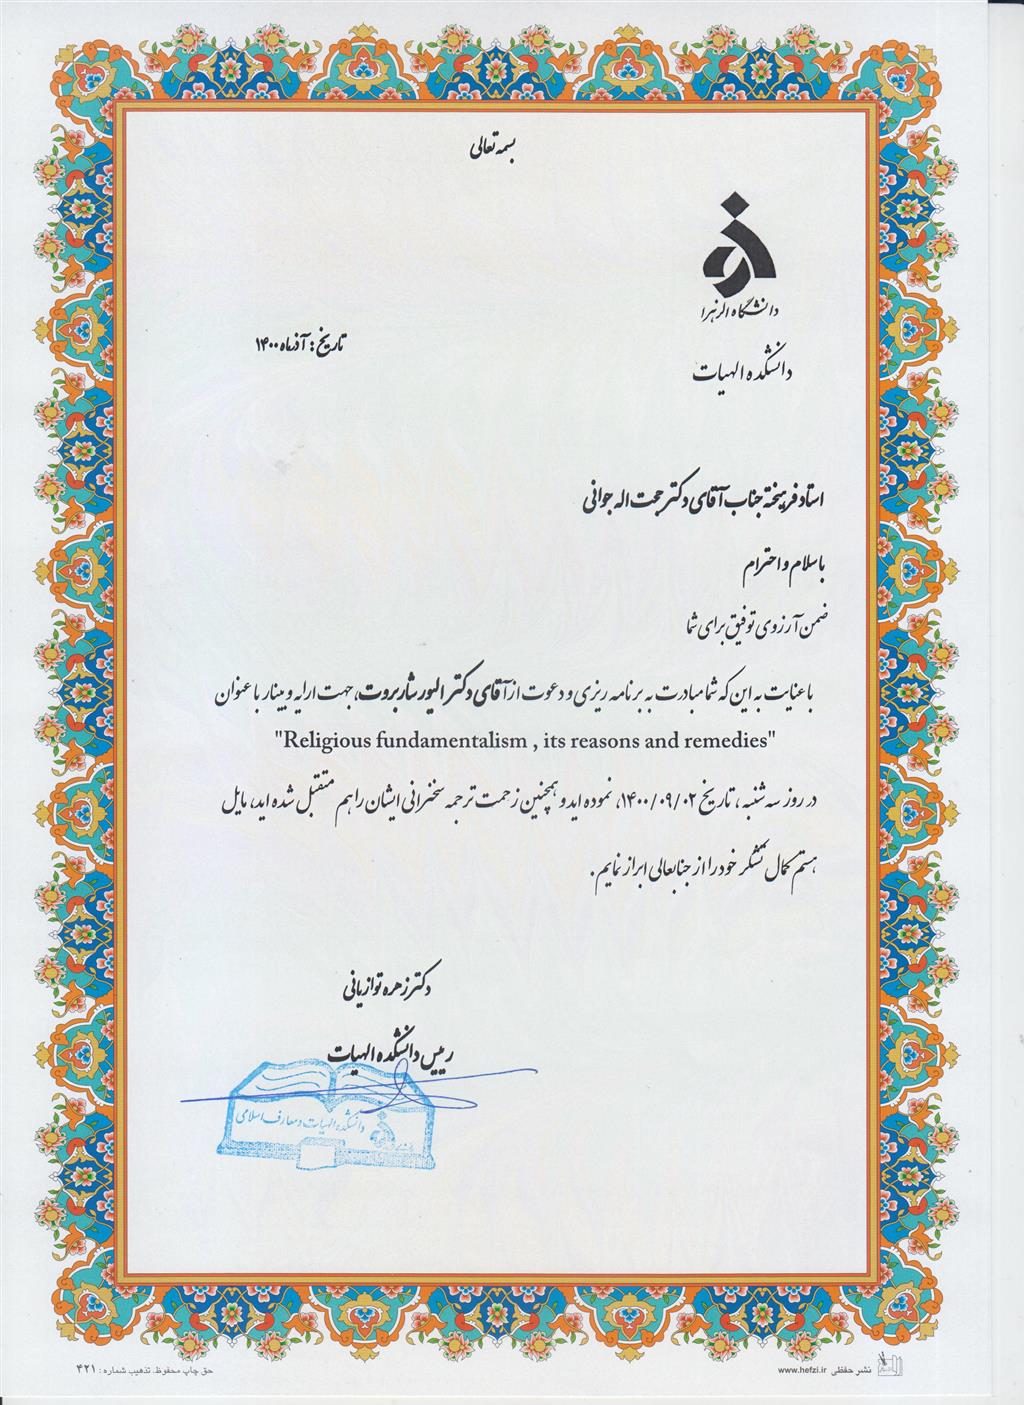 بسمه تعالی
دانشگاه الزهرا
تاریخ: آذرماه ۱۴۰۰
دانشکده الهیات
استاد فرهیخته جناب آقای دکتر حجت اله جوانی
با سلام و احترام
ضمن آرزوی توفیق برای شما
با عنایت به این که شما مبادرت به برنامه ریزی و دعوت از آقای دکتر الیور شاربروت، جهت ارایه وبینار با عنوان
"Religious fundamentalism , its reasons and remedies"
در روز سه شنبه، تاریخ ۱۴۰۰/۰۹/۰۲، نموده اید و همچنین زحمت ترجمه سخنرانی ایشان را هم متقبل شده اید، مایل
هستم کمال تشکر خود را از جنابعالی ابراز نمایم.
دکتر زهره توازیانی
رییس دانشکده الهیات
دانشکده الهیات و معارف اسلامی
حق چاپ محفوظ. تذهیب شماره: ۴۲۱
نشر حفظی www.hefzi.ir